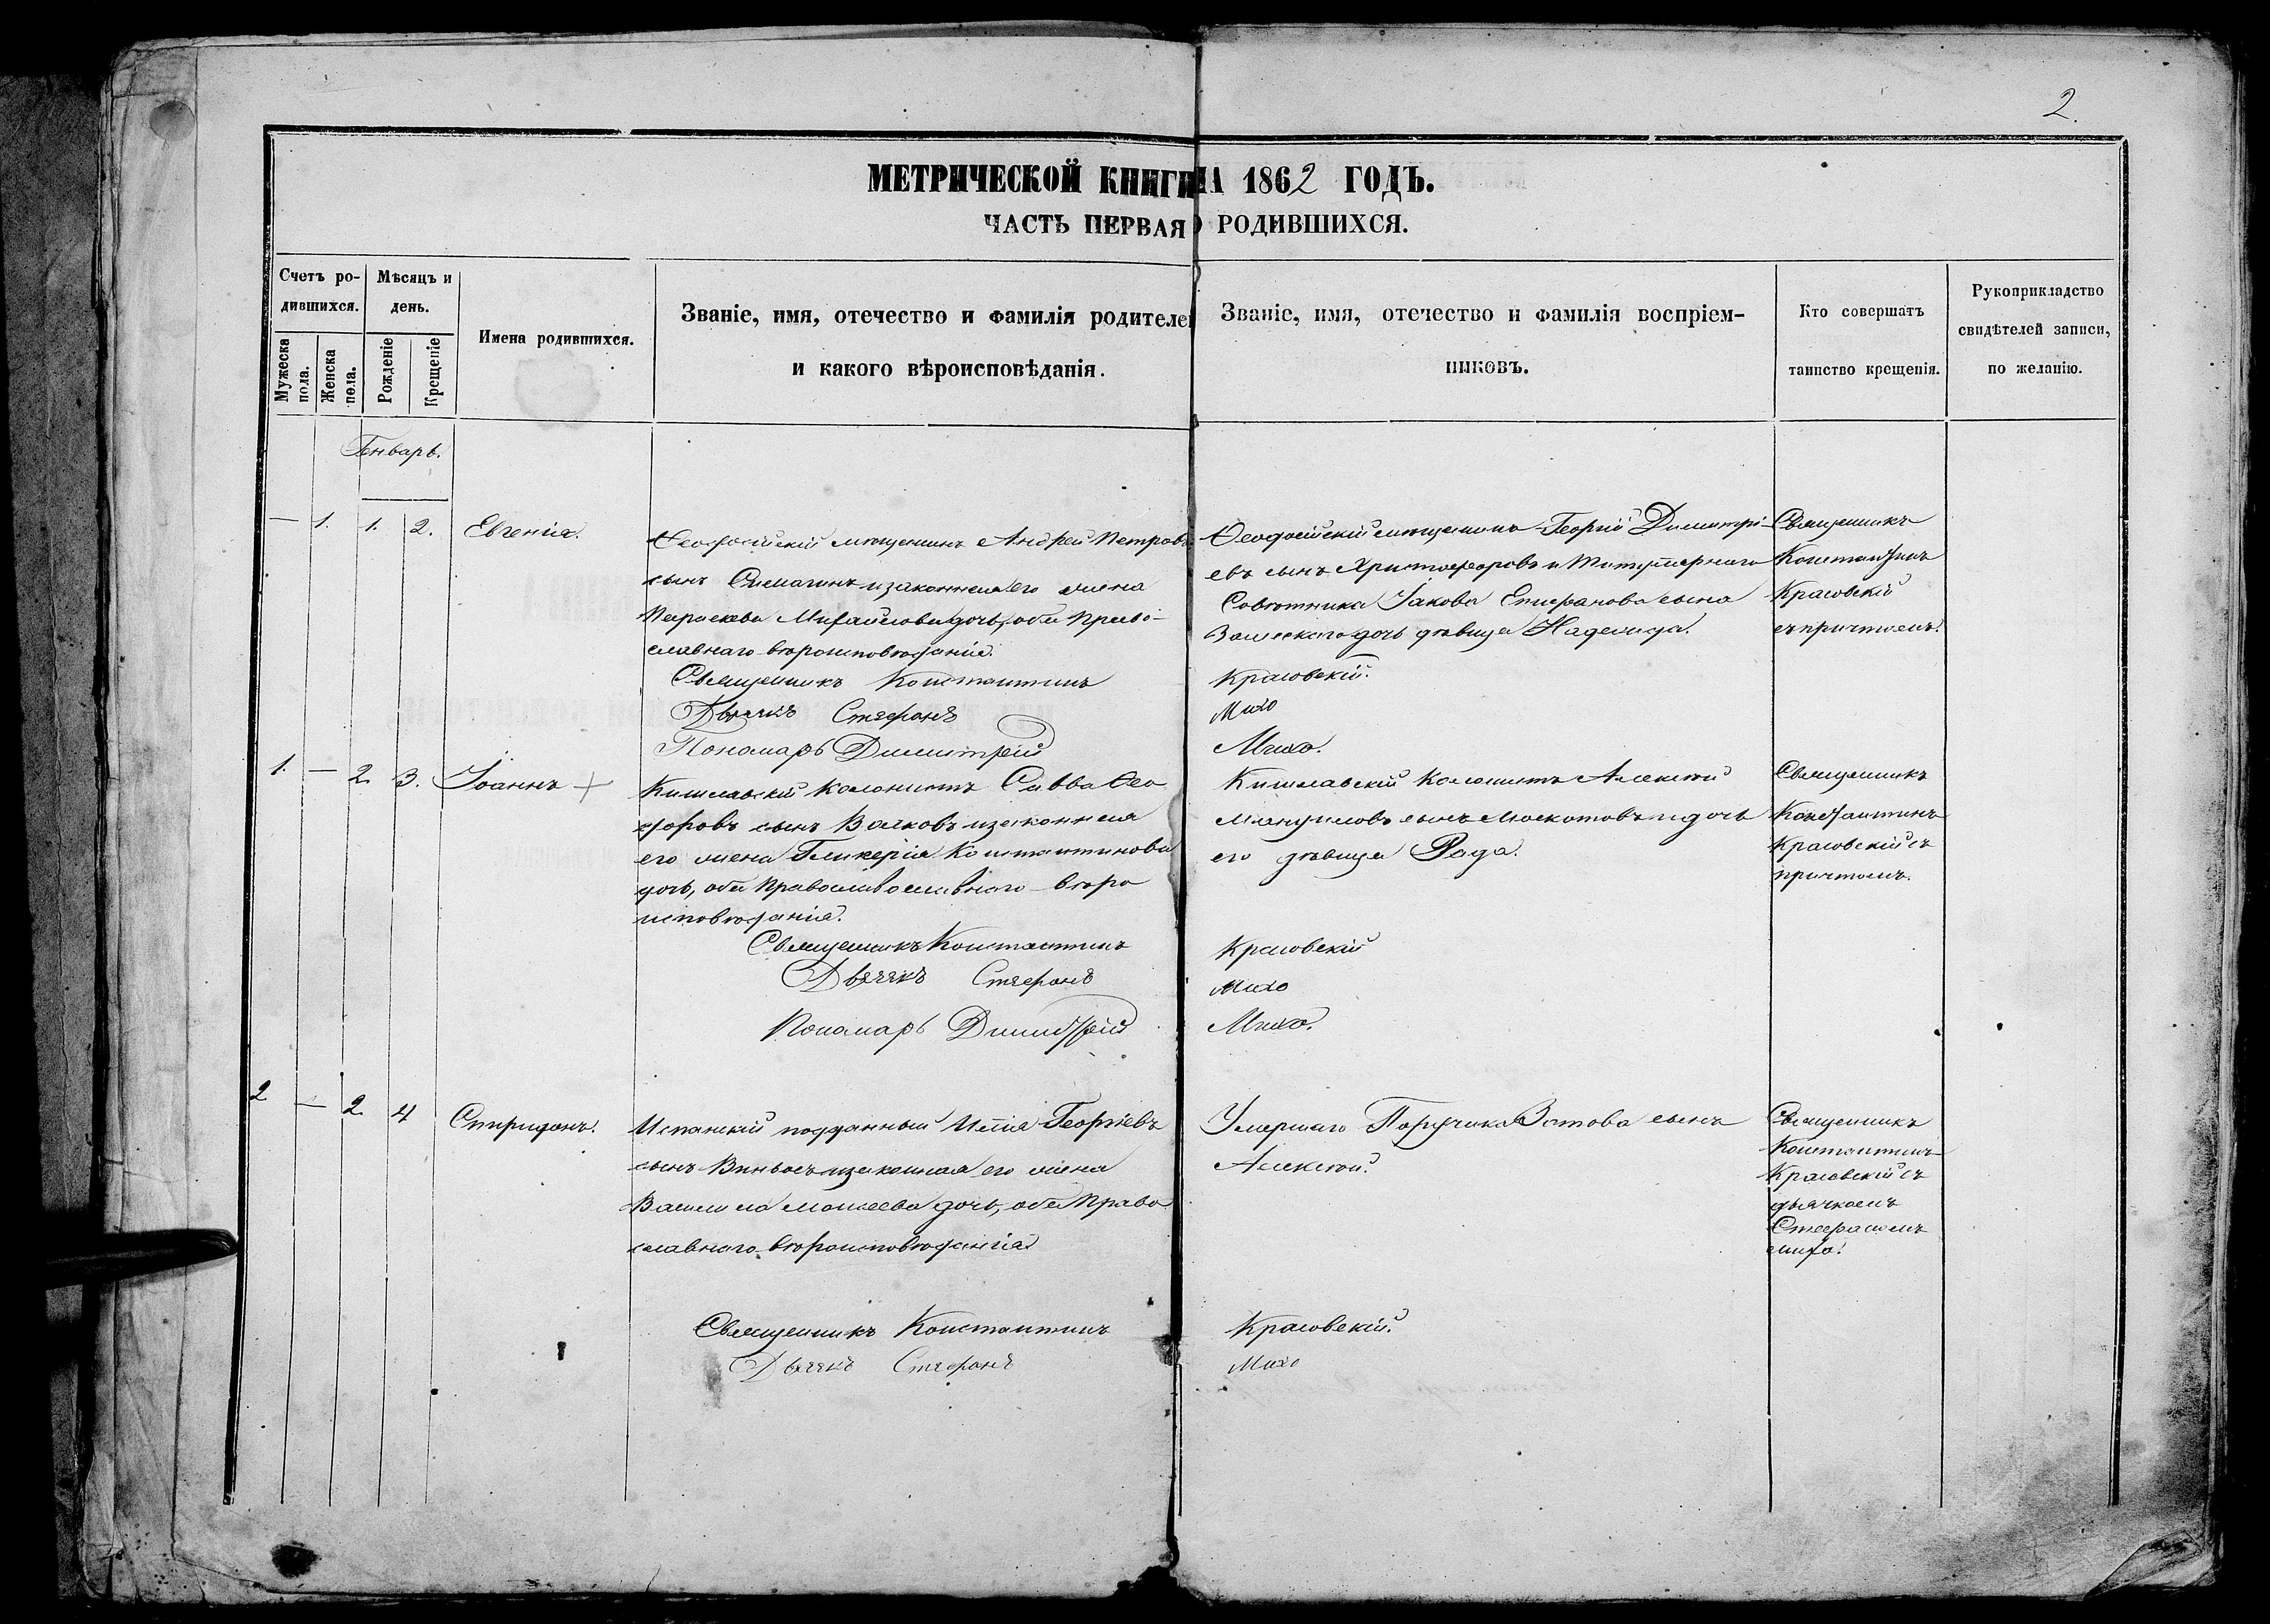 2.
МЕТРИЧЕСКОЙ КНИГИ НА 1862 ГОДЪ.
ЧАСТЬ ПЕРВАЯ О РОДИВШИХСЯ.
Счетъ ро-
дившихся.
Мужеска пола.
Женска пола.
Мѣсяцъ и
день.
Рожденіе
Крещеніе
Имена родившихся.
Званіе, имя, отечество и фамилія родителе
и какого вѣроисповѣданія.
Званіе, имя, отечество и фамилія воспріем-
никовъ.
Кто совершатъ
таинство крещенія.
Рукоприкладство
свидѣтелей записи,
по желанію.
Генварь.
— 1. 1. 2. Евгенія.
Ѳеодосійскій мѣщанинъ Андрей Петровъ
сынъ и законная его жена
Параскева Михайлова дочь, оба Право-
славнаго вѣроисповѣданія.
Священникъ Константинъ
Дьячекъ Стефанъ
Пономарь Димитрій
Ѳеодосійскій мѣщанинъ Георгій Димитрі-
евъ сынъ Христофоровъ и Титулярнаго
Совѣтника Іакова Епифанова сына
дочь дѣвица Надежда.
Красовскій.
Михо
Михо.
Священникъ
Константинъ
Красовскій
съ причтомъ.
1. — 2. 3. Іоаннъ +
Кишлавскій колонистъ Савва Ѳео
доровъ сынъ Волковъ и законная
его жена Гликерія Константинова
дочь, оба Православославнаго вѣро
исповѣданія.
Священникъ Константинъ
Дьячекъ Стефанъ
Пономарь Димитрій
Кишлавскій Колонистъ Алексѣй
Мануиловъ сынъ и дочь
его дѣвица Рада.
Красовскій
Михо
Михо.
Священникъ
Константинъ
Красовскій съ
причтомъ.
2 — 2. 4 Спиридонъ.
Испанскій подданный Георгіевъ
сынъ и законная его жена
Моисеева дочь, оба Право
славнаго вѣроисповѣданія
Священникъ Константинъ
Дьячекъ Стефанъ
Умершаго Поручика сынъ
Алексѣй.
Красовскій.
Михо
Священникъ
Константинъ
Красовскій съ
дьячкомъ
Стефаномъ
Михо.